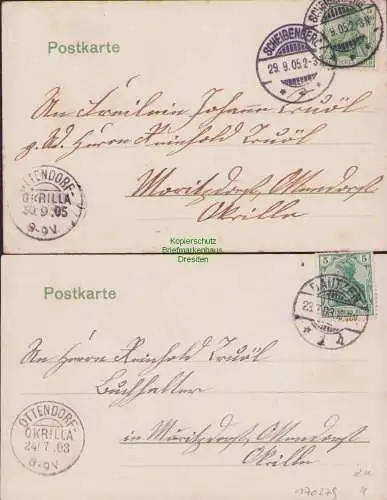 Postkarte
SCHEIBENBERG
29.9.05.2-3N.
9.05.2-3N.
An Fräulein Johanne Truöl
Herrn Reinhold Truöl
Moritzdorf, Ottendorf
Okrilla
OTTENDORF-
OKRILLA
30.9.05
8-9V.
Kopierschutz
Briefmarkenhaus
Dresden
Postkarte
5 5
BAUTZEN
An Herrn Reinhold Truöl
Buchhalter
in Moritzdorf, Ottendorf
Okrilla
OTTENDORF-
OKRILLA
24/7.03
8-9V.
170275